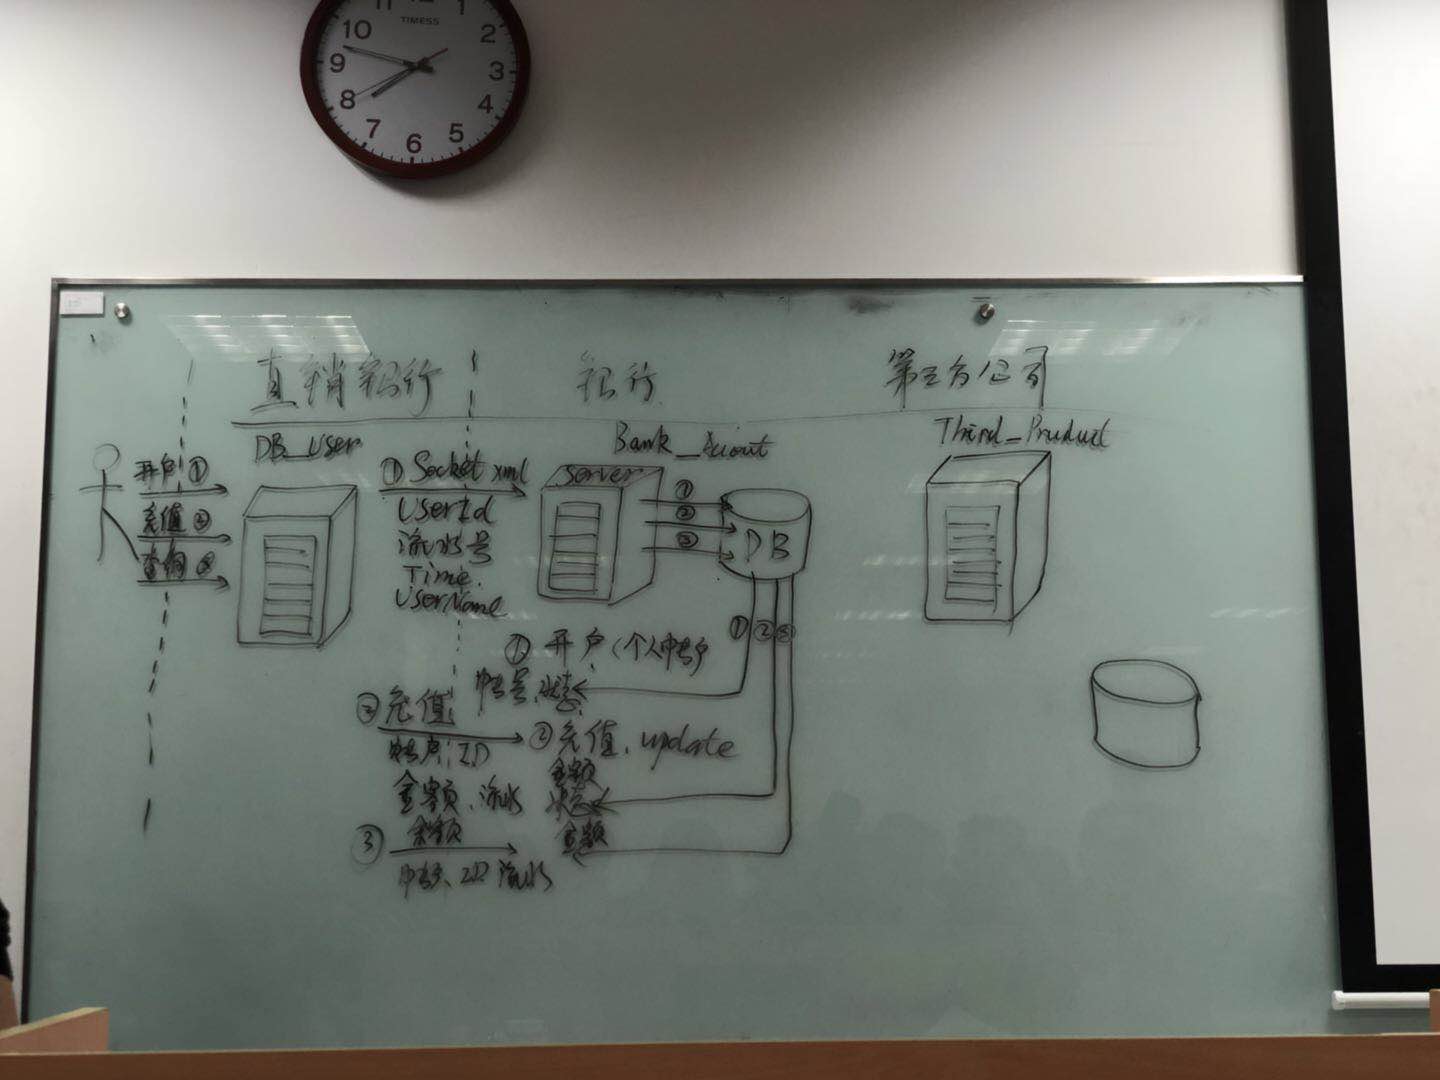 11 12 1
10 2
9 3
8 4
7 6 5
TIMESS
直销银行 银行 第三方公司
DB_User Bank_Acout Third_Product
开户 ①
充值 ②
查询 ③
① Socket xml
UserId
流水号
Time
UserName
server
① 
②
③
DB
① ② ③
① 开户(个人帐户
帐号、状态
② 充值
帐户、ID
金额、流水
② 充值、update
金额
状态
③ 余额
帐号、ID 流水
金额